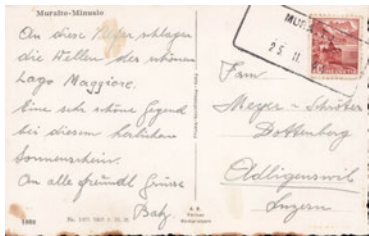 Muralto-Minusio
An diese Ufer schlagen
die Wellen des schönen
Lago Maggiore.
Eine sehr schöne Gegend
bei diesem herlichen
Sonnenschein.
An alle freundl Grüsse
Fam
Meyer-Schöber
Dottenberg
Adligenswil
Luzern
MURA
25 II